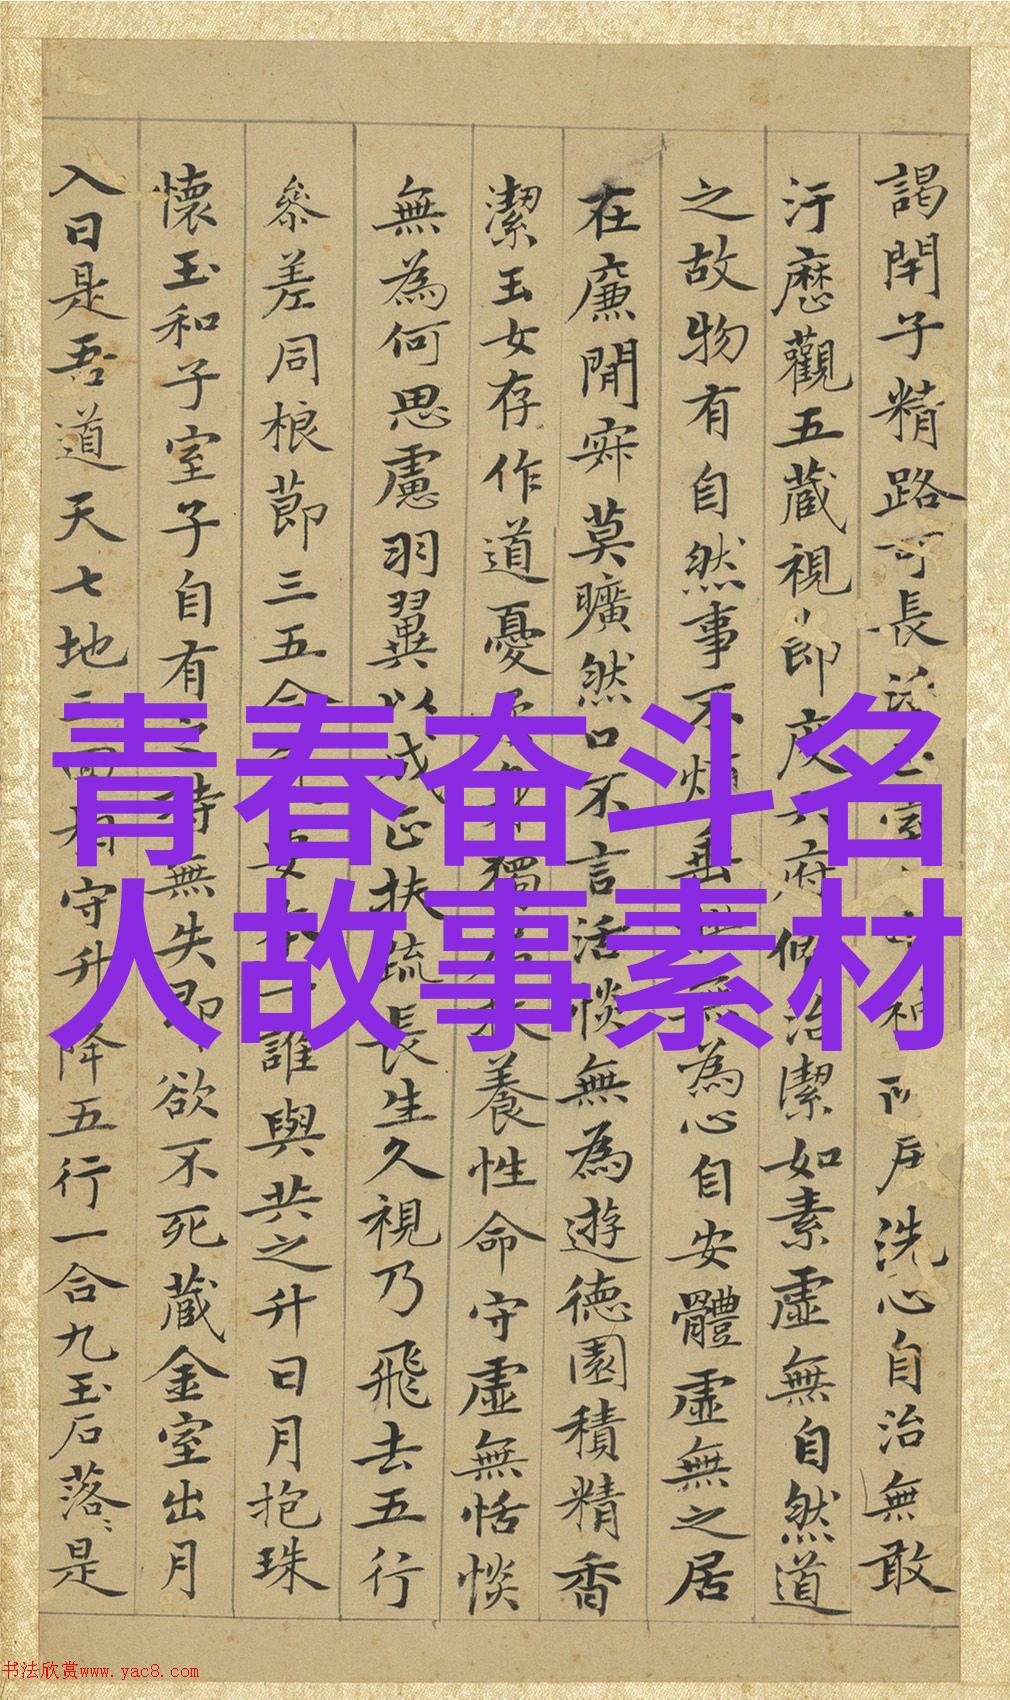 謁閈子精路可長
洗心自治無敢
汙歷觀五藏視
節度
府
治潔如素虛無自然道
之故物有自然事不煩垂
為心自安體虛無之居
在廉閒寂莫曠然口不言活惔無為遊德園積精香
潔玉女存作道憂
養性命守虛無恬惔
無為何思慮羽翼以成正扶疏長生久視乃飛去五行
參差同根節三五合
誰與共之升日月抱珠
懷玉和子室子自有之持無失即欲不死藏金室出月
入日是吾道天七地三回相守升降五行一合九玉石落〻是
青春奋斗名
人故事素材
书法欣赏www.yac8.com